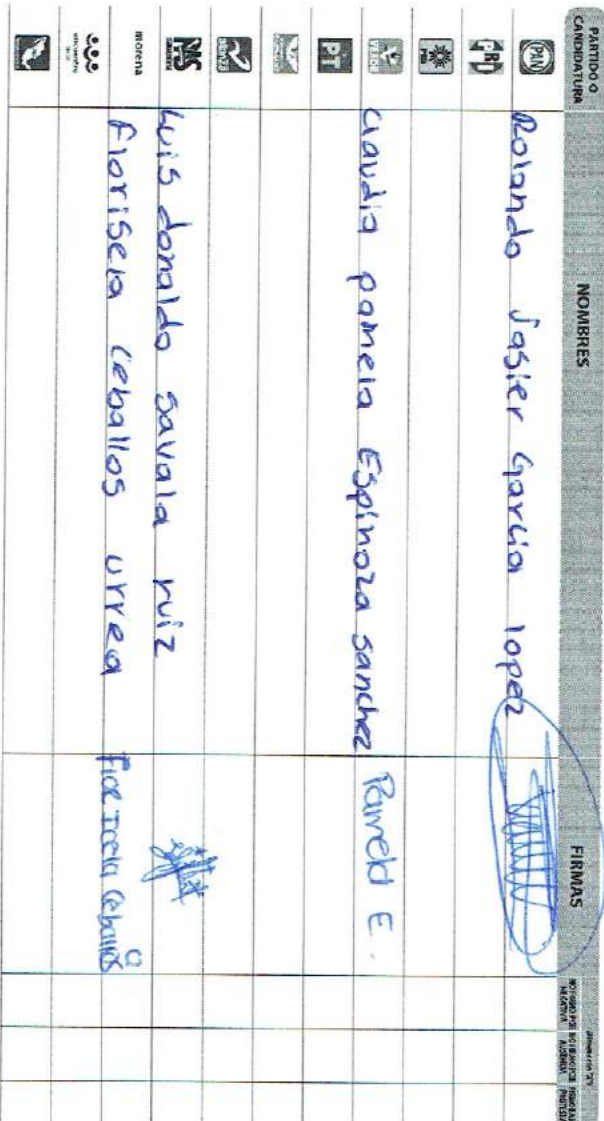 PARTIDO O CANDIDATURA NOMBRES FIRMAS
PAN Rolando Jasier Garcia lopez
PRD
VERDE claudia pamela Espinoza sanchez Pamela E.
PT
MAS luis donaldo savala ruiz
morena floriseia ceballos urrea
encuentro